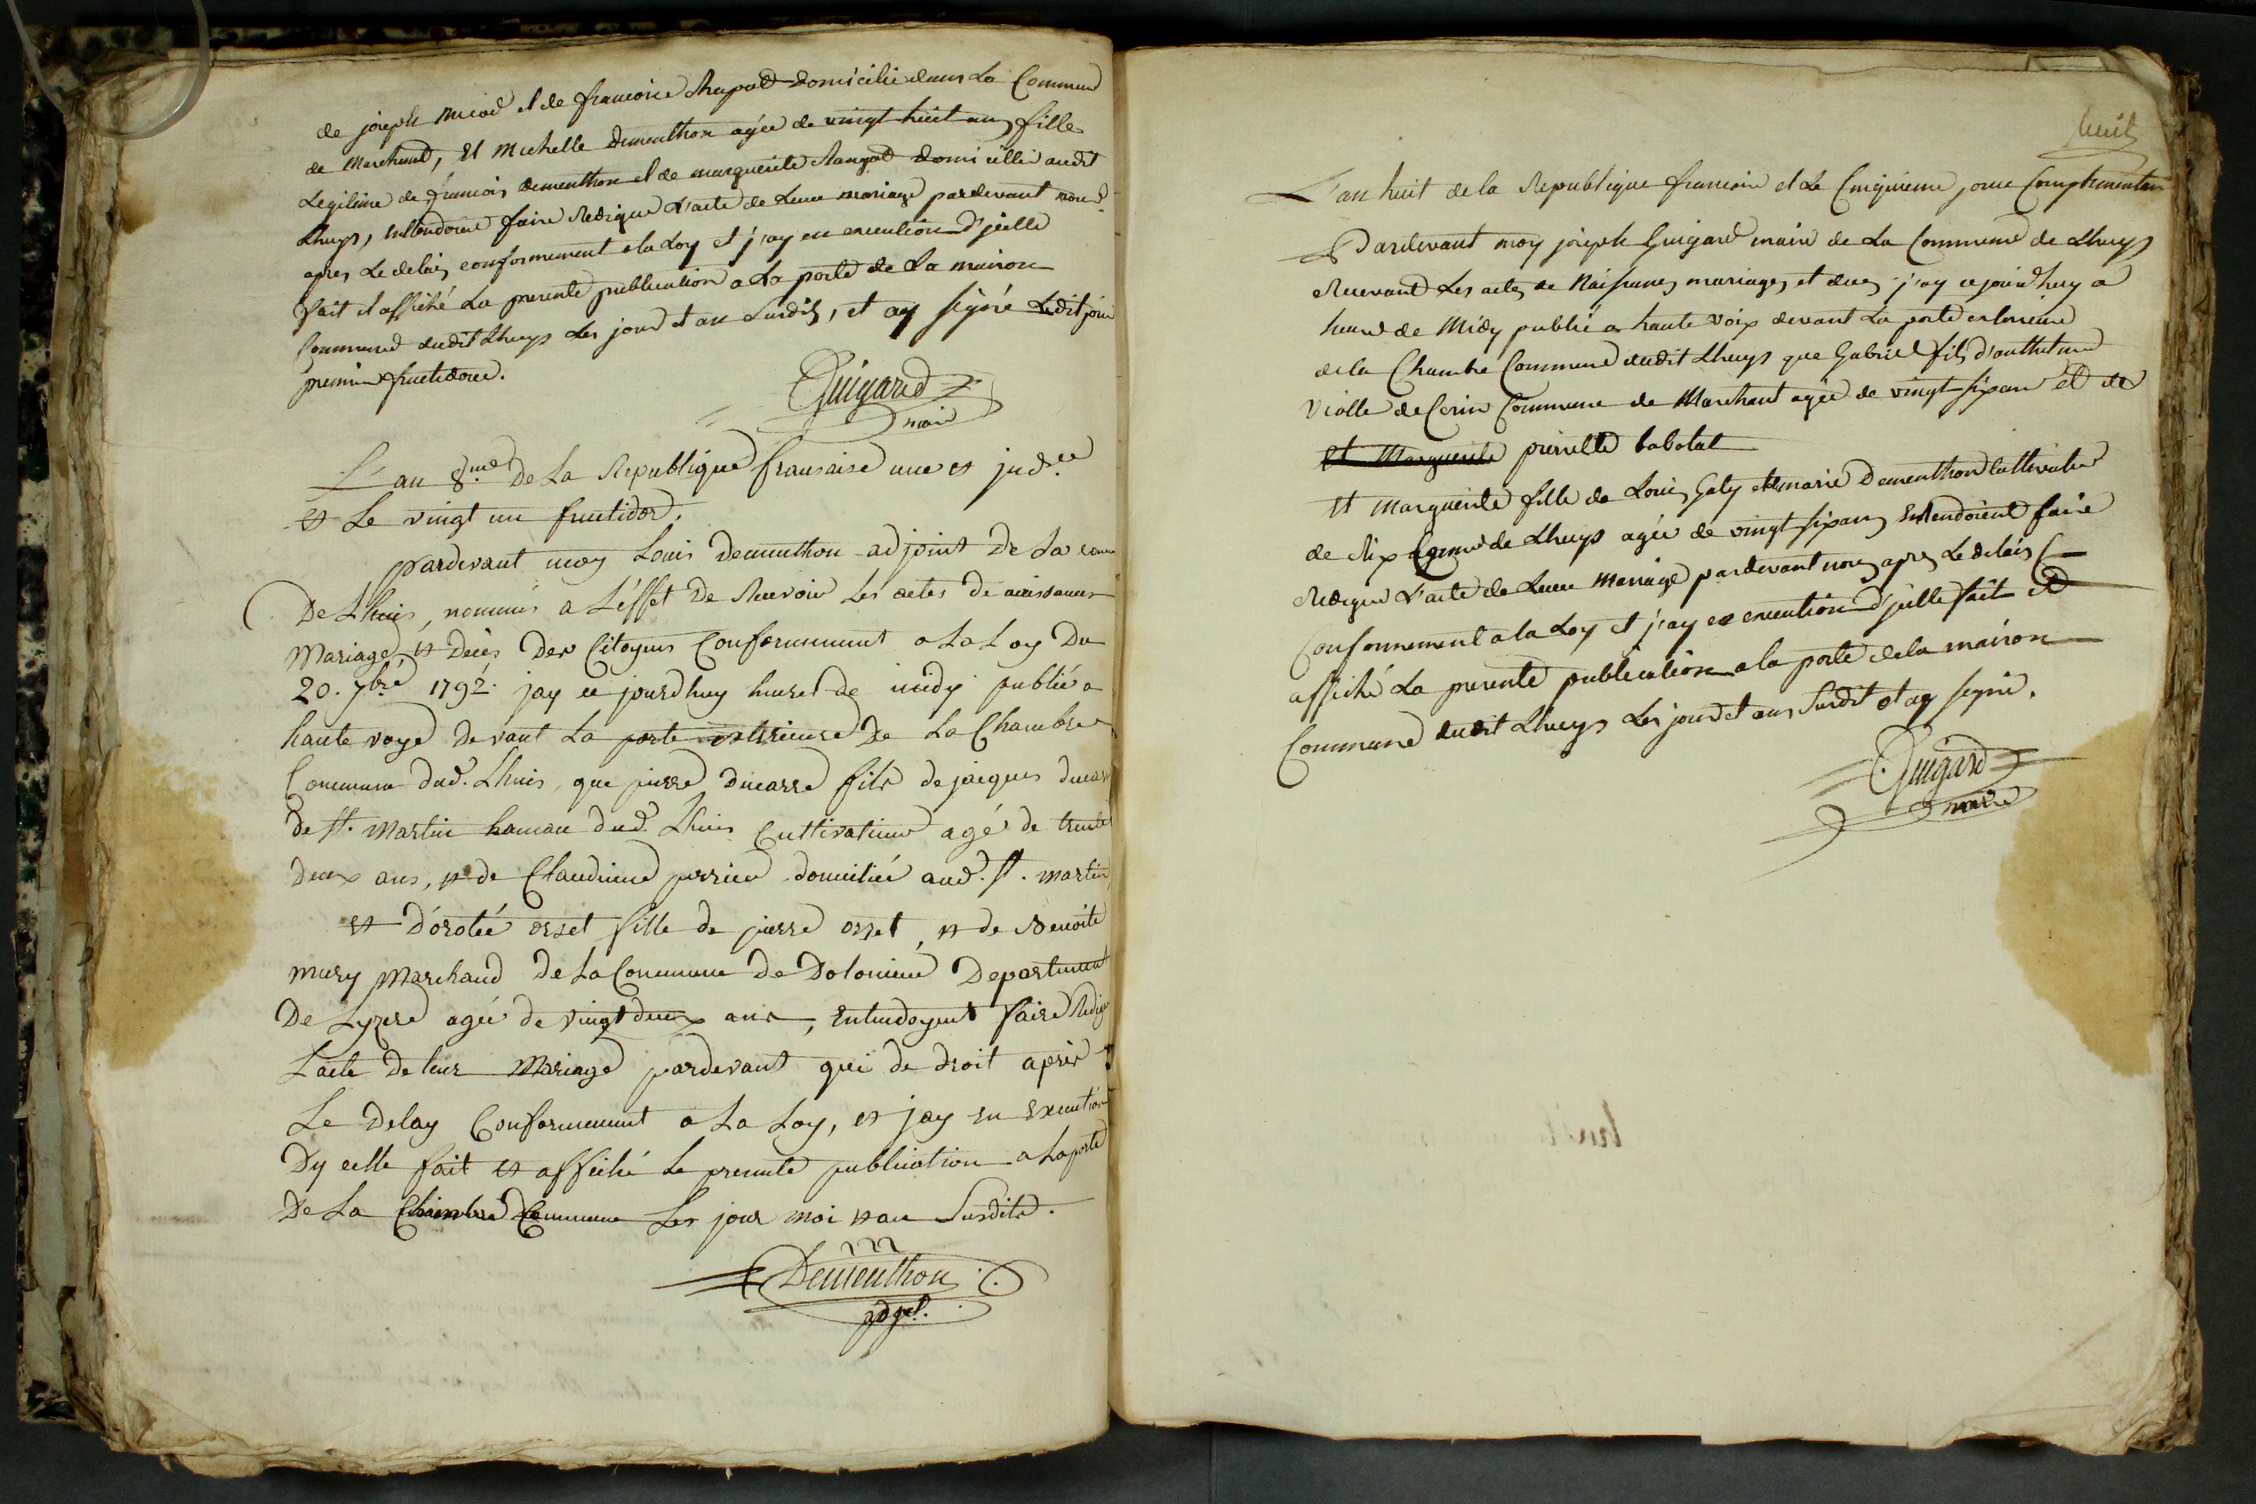 de joseph micod et de francoise Chapod domicilié dans La Commune
de Marchand, Et Michelle Dementhon agée de vingt huit ans fille
Legitime de francois dementhon et de marguerite domicillié audit
Lhuys, Entendoient faire Rediger L'acte de Leur mariage pardevant nous
apres Le delais conformement a la Loy et j'ay en execution d'jcelle
fait et affiché La presente publication a La porte de La maison
Commune dudit Lhuys Les jour et an Susdits, et ay signé Ledit jour
premier fructidore.
Guigard
maire
L'an 8.me De La Republique fransaise une et jnd.ee
et Le vingt un fructidor.
pardevant moy Louis dementhon adjoint De La comm
De Lhuis, nommés a L'éffet De Recevoir Les actes De naissances
Mariage et Décès Des Citoyens Conformement a La Loy Du
20. 7bre 1792. jay ce jourdhuy heures de midy publié a
haute voye devant La porte exterieure De La Chambre
Commune dud. Lhuis, que pierre ducarre fils de jacques ducarre
De st. Martin hamau dud. Lhuis Cultivateur agé de trente
deux ans, et de Claudine perrier domiciliée aud. st. martin
et Dorotée orset fille de pierre orset, et de Benoite
mury Marchand De La Commune De Dolomieu Departement
De Lyzere agée de vingt deux ans, Entendoyent faire Rediger
L'acte De leur Mariage pardevant qui de droit après
Le Delay Conformement a La Loy, et jay en Execution
Dycelle fait et affiché Le presente publication a La porte
De La Chambre Commune Les jour moi et an Susdits.
Dementhon
adjt.
huit
L'an huit de la Republique francoise et Le Cinquieme jour Complementaire
Pardevant moy joseph Guigard maire de La Commune de Lhuys
Recevant Les actes de Naissances mariages et deces j'ay cejourd'huy a
heure de Midy publié a haute voix devant La porte exterieure
de la Chambre Commune dudit Lhuys que Gabriel fils d'anthelme
Violle de Cerin Commune de Marchant agée de vingt six ans et de
et Marguerite pierrette babolat
Et Marguerite fille de Louis Galy et de marie Dementhon Cultivateur
de Rix Commune de Lhuys agée de vingt six ans Entendoient faire
Rediger L'acte de Leur Mariage pardevant nous apres Le delais
Conformement a la Loy et j'ay en execution d'jcelle fait et
affiché La presente publication a la porte de la maison
Commune dudit Lhuys Les jour et an Susdit et ay signé.
Guigard
maire